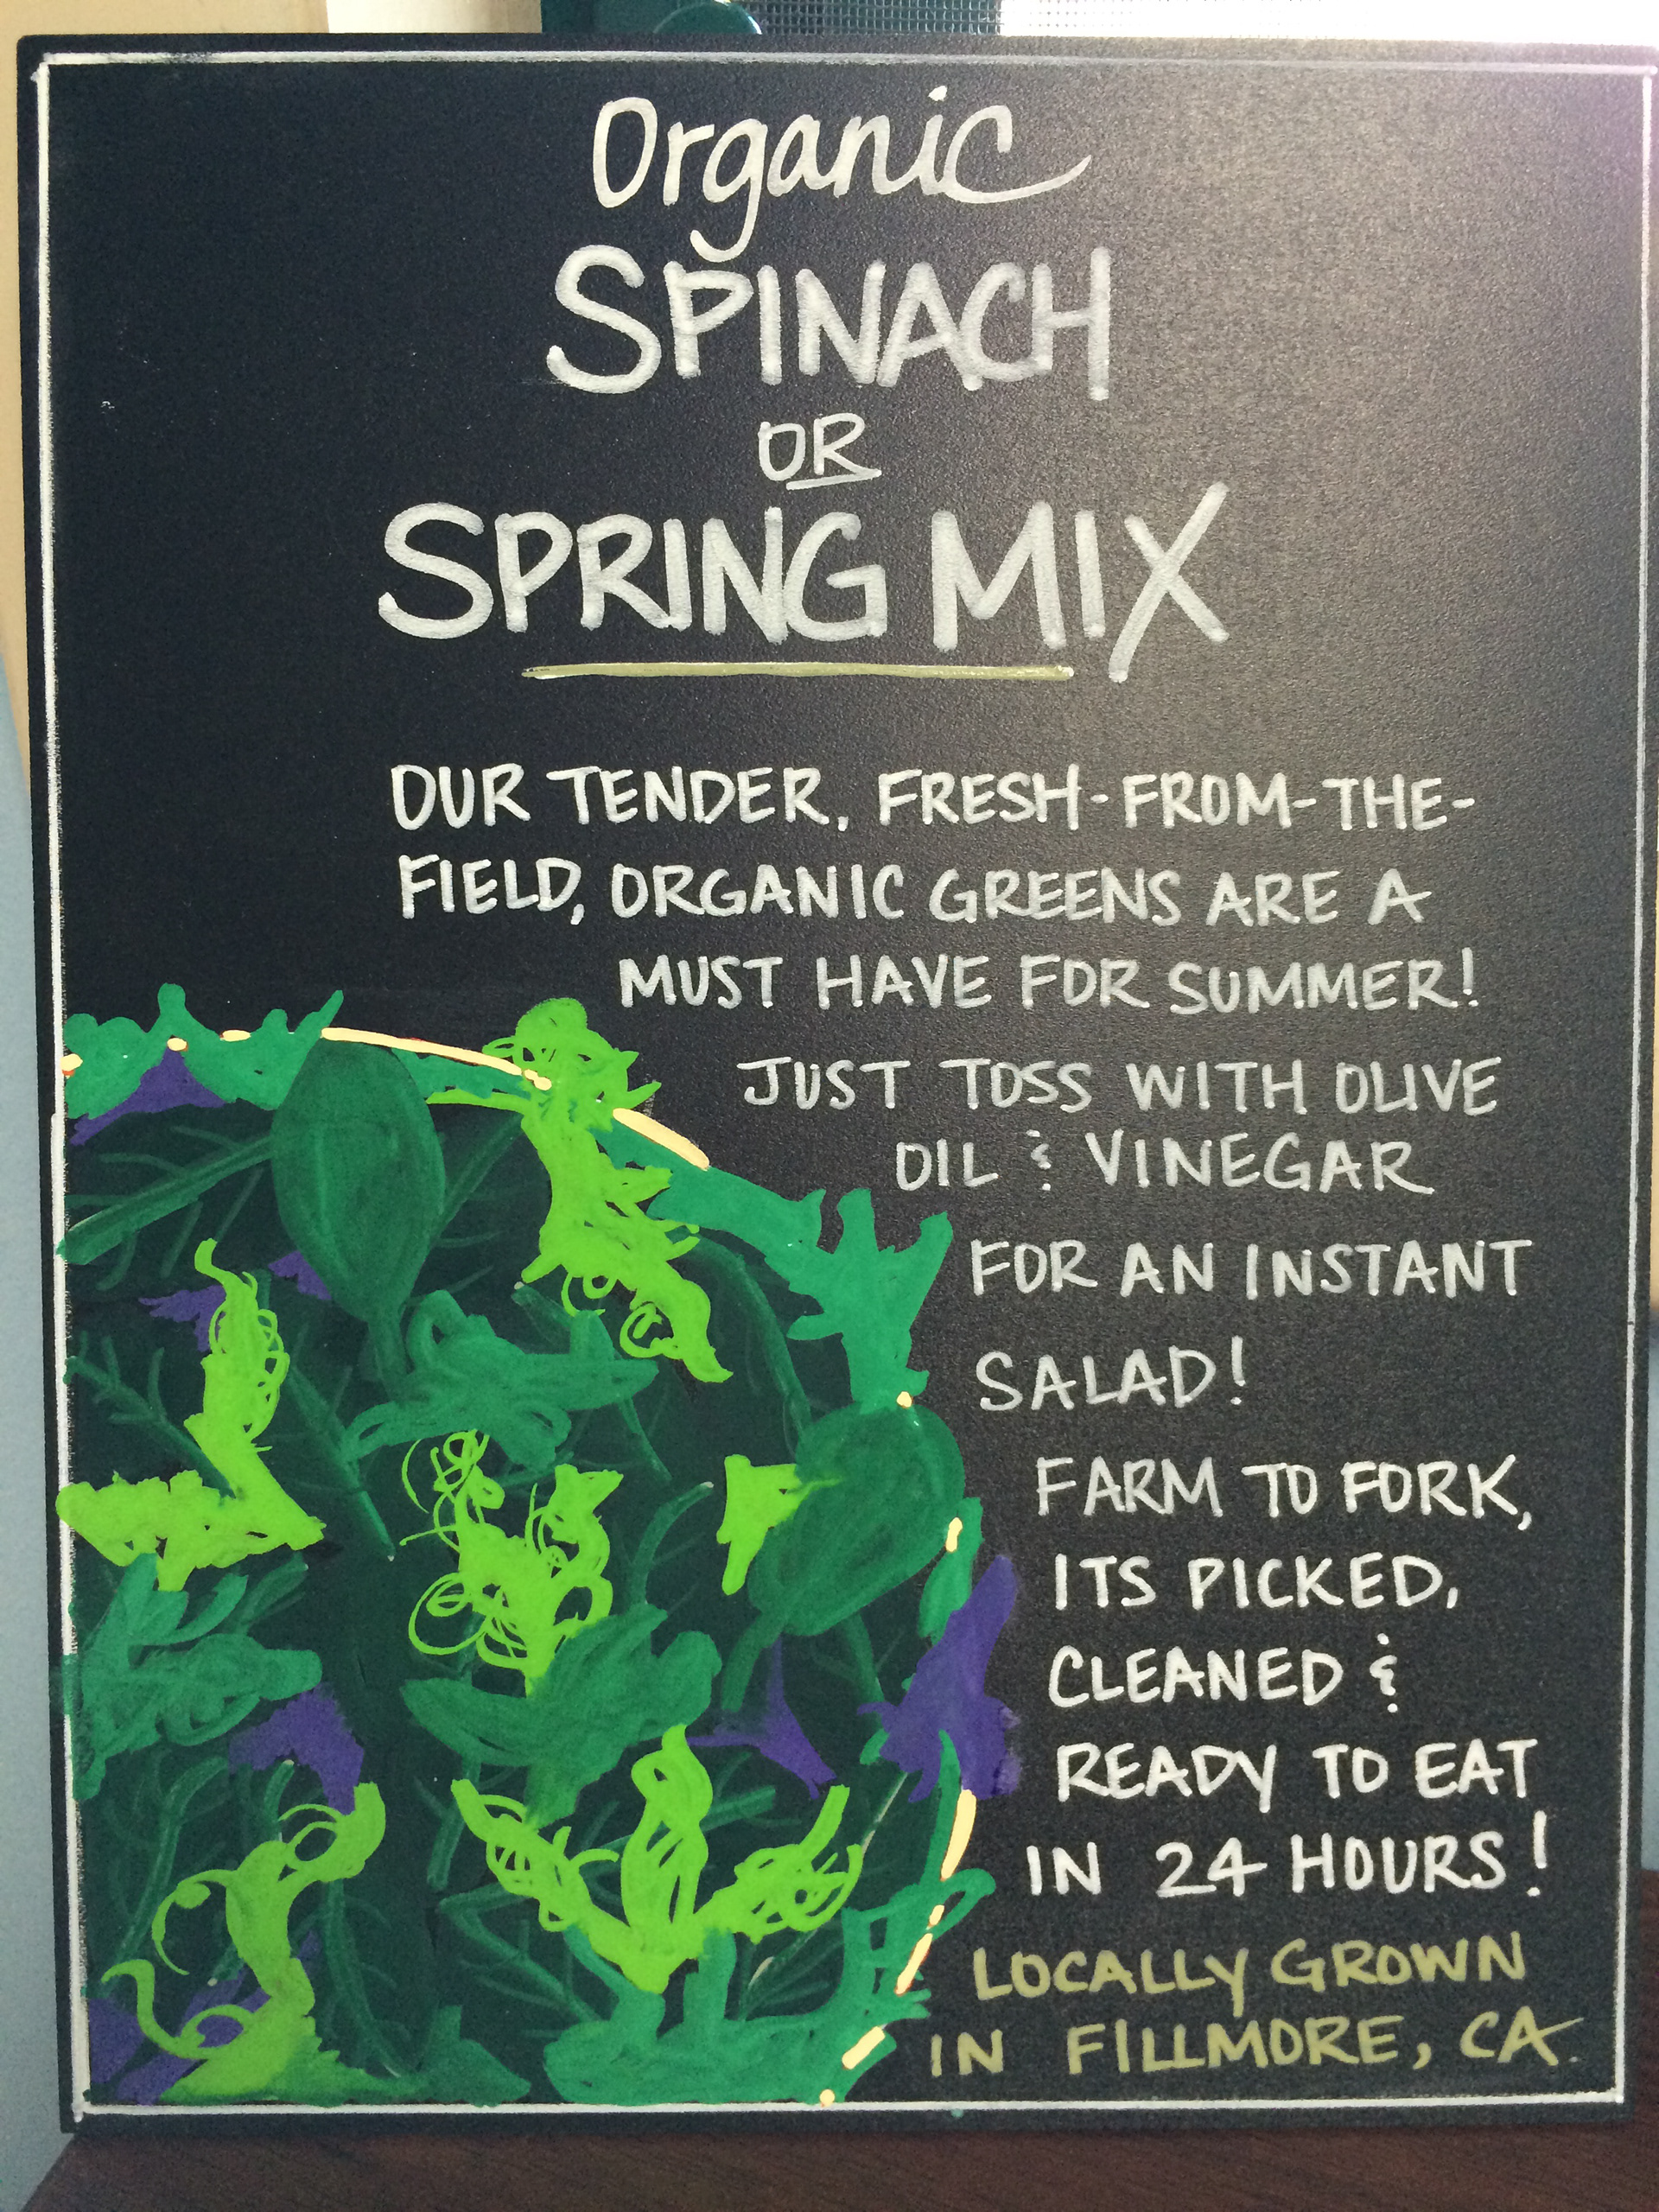 Organic
SPINACH
OR
SPRING MIX
OUR TENDER, FRESH-FROM-THE-
FIELD, ORGANIC GREENS ARE A
MUST HAVE FOR SUMMER!
JUST TOSS WITH OLIVE
OIL & VINEGAR
FOR AN INSTANT
SALAD!
FARM TO FORK,
ITS PICKED,
CLEANED &
READY TO EAT
IN 24 HOURS!
LOCALLY GROWN
IN FILLMORE, CA.